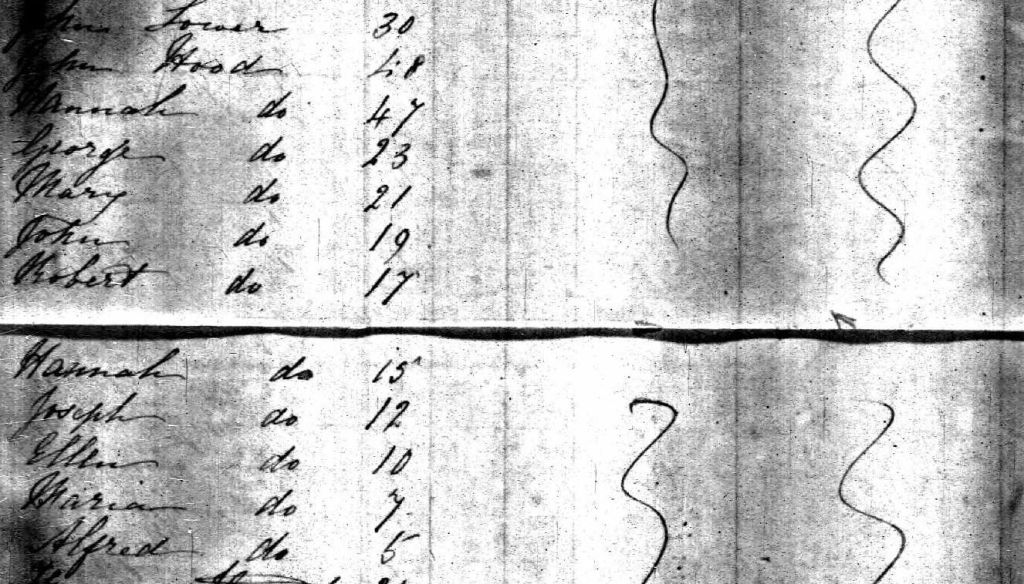 John Lower 30
John Hood 48
Hannah do 47
George do 23
Mary do 21
John do 19
Robert do 17
Hannah do 15
Joseph do 12
Ellen do 10
Maria do 7
Alfred do 5